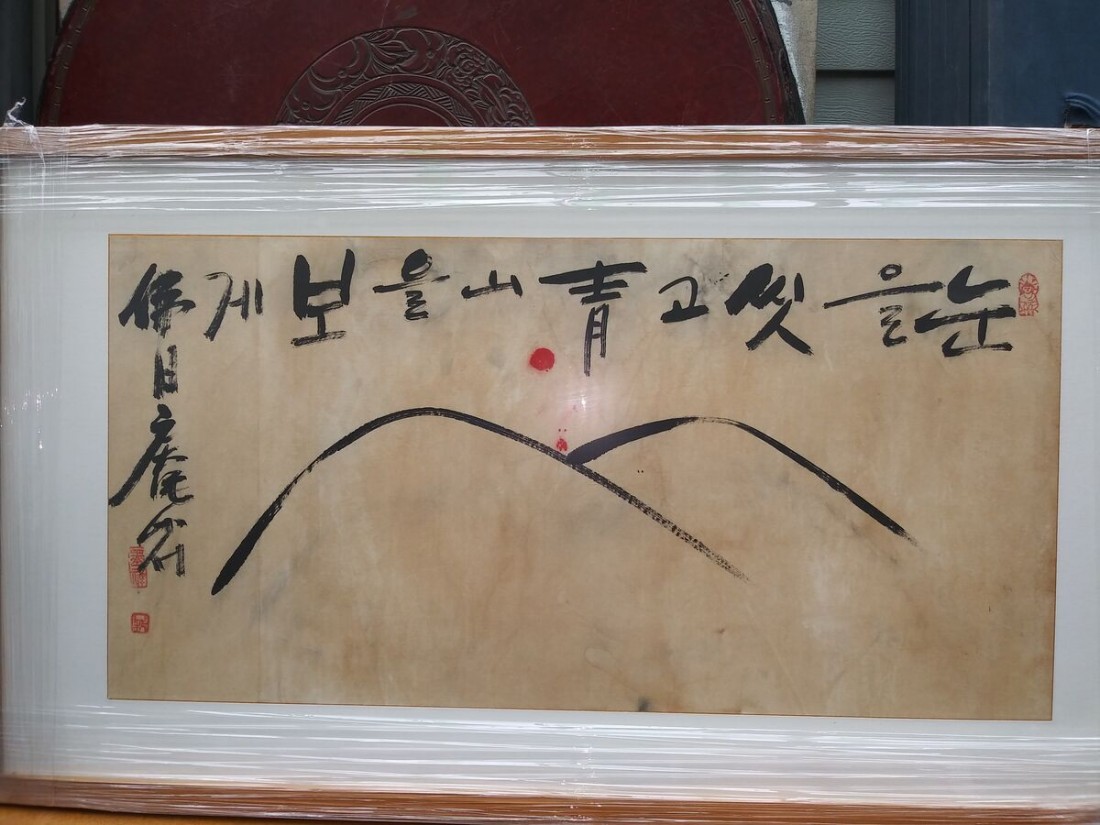 눈을 씻고 青山을 보게
佛日庵